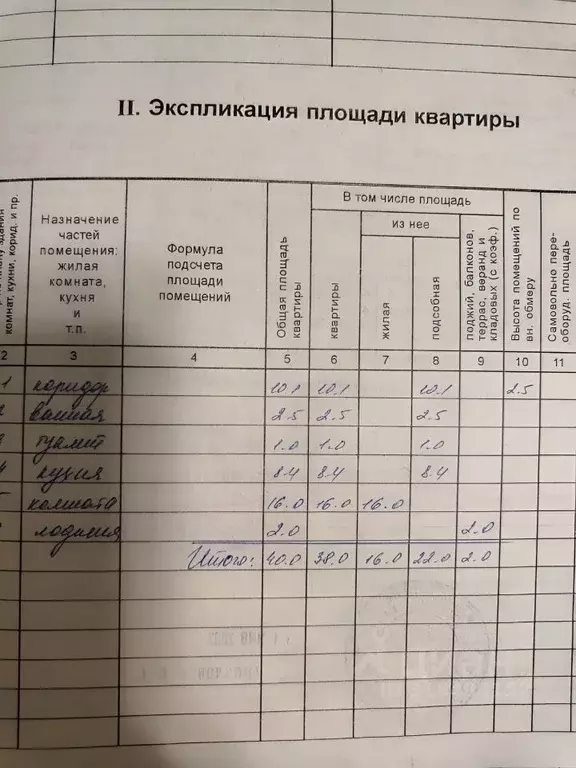 II. Экспликация площади квартиры
комнат, кухни, корид. и пр.
Назначение
частей
помещения:
жилая
комната,
кухня
и
т.п.
Формула
подсчета
площади
помещений
Общая площадь
квартиры
В том числе площадь
квартиры
из нее
жилая
подсобная
лоджий, балконов,
террас, веранд и
кладовых (с коэф.)
Высота помещений по
вн. обмеру
Самовольно пере-
оборуд. площадь
2 3 4 5 6 7 8 9 10 11
1 коридор 10.1 10.1 10.1 2.5
ванная 2.5 2.5 2.5
туалет 1.0 1.0 1.0
кухня 8.4 8.4 8.4
комната 16.0 16.0 16.0
лоджия 2.0 2.0
Итого: 40.0 38.0 16.0 22.0 2.0